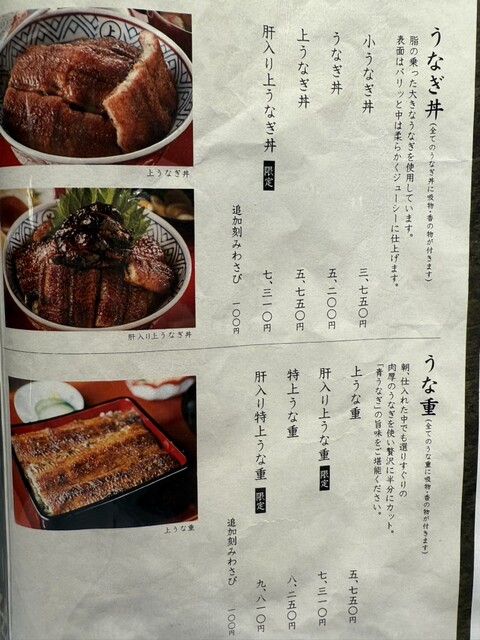 うなぎ丼(全てのうなぎ丼に吸物・香の物が付きます)
脂の乗った大きなうなぎを使用しています。
表面はパリッと中は柔らかくジューシーに仕上げます。
小うなぎ丼 三、七五〇円
うなぎ丼 五、二〇〇円
上うなぎ丼 五、七五〇円
肝入り上うなぎ丼 限定 七、三一〇円
追加刻みわさび 一〇〇円
上うなぎ丼
肝入り上うなぎ丼
うな重(全てのうな重に吸物・香の物が付きます)
朝、仕入れた中でも選りすぐりの
肉厚のうなぎを使い贅沢に半分にカット。
「青うなぎ」の旨味をご堪能ください。
上うな重 五、七五〇円
肝入り上うな重 限定 七、三一〇円
特上うな重 八、二五〇円
肝入り特上うな重 限定 九、八一〇円
追加刻みわさび 一〇〇円
上うな重